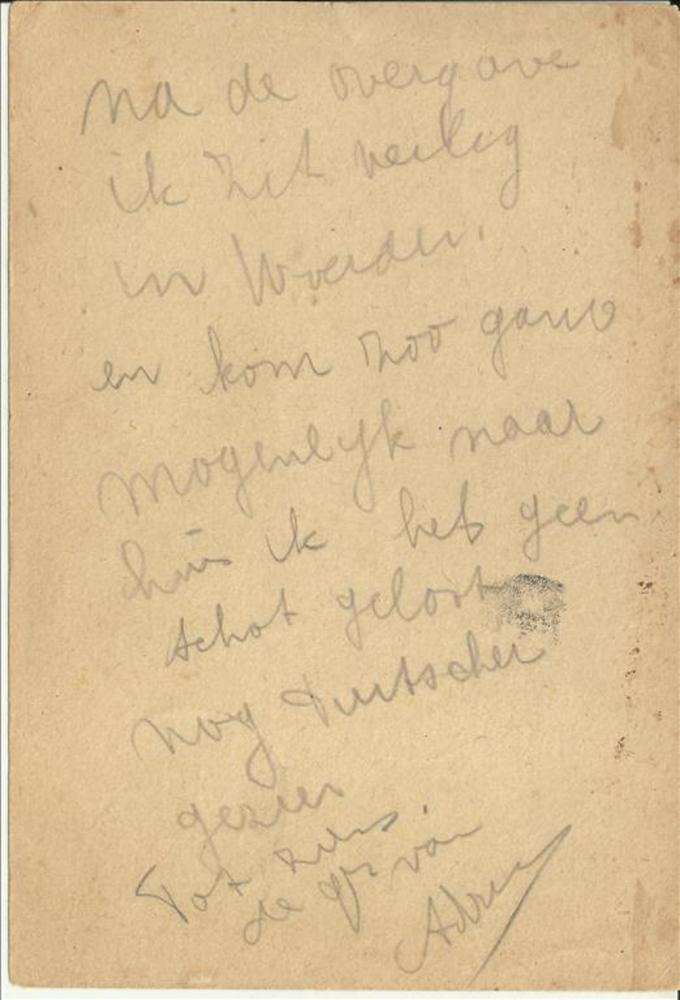 na de overgave
ik zit veilig
in Woerden.
en kom zoo gauw
mogenlijk naar
huis ik heb geen
schot gelost
nog Duitscher
gezien
Tot ziens.
de gr van